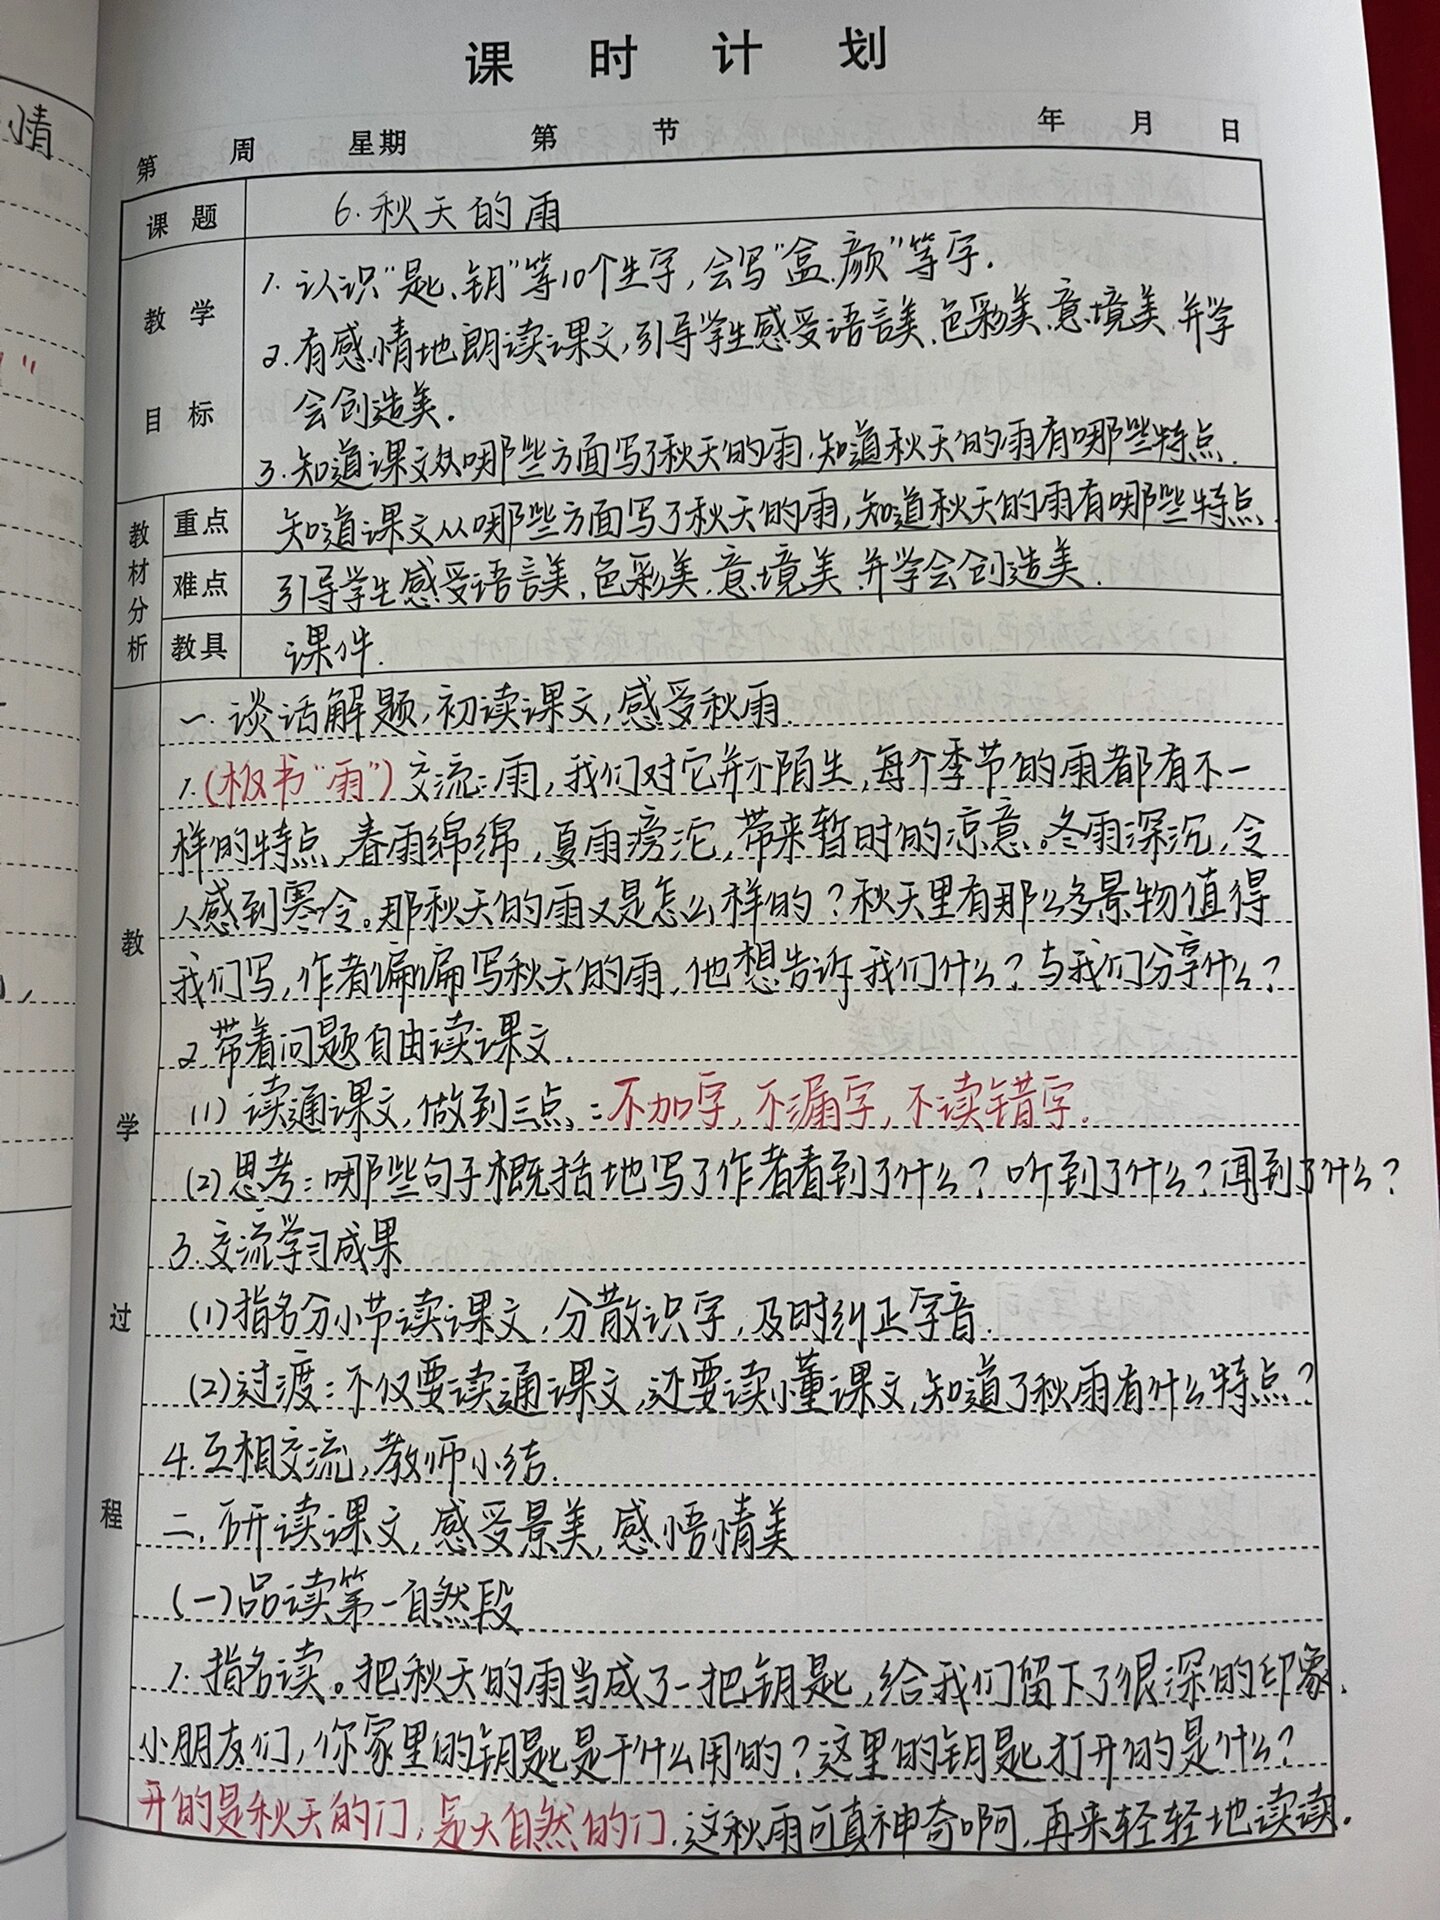 情
"
课时计划
第 周 星期 第 节 年 月 日
课题 6.秋天的雨
教学目标
1.认识“匙、钥”等10个生字,会写“盒、颜”等字.
2.有感情地朗读课文,引导学生感受语言美、色彩美、意境美、并学
会创造美.
3.知道课文从哪些方面写了秋天的雨,知道秋天的雨有哪些特点.
教材分析
重点 知道课文从哪些方面写了秋天的雨,知道秋天的雨有哪些特点.
难点 引导学生感受语言美、色彩美、意境美、并学会创造美.
教具 课件.
教学过程
一.谈话解题,初读课文,感受秋雨.
1.(板书“雨”)交流:雨,我们对它并不陌生,每个季节的雨都有不一
样的特点,春雨绵绵,夏雨滂沱,带来暂时的凉意。冬雨深沉,令
人感到寒冷。那秋天的雨又是怎么样的?秋天里有那么多景物值得
我们写,作者偏偏写秋天的雨,他想告诉我们什么?与我们分享什么?
2.带着问题自由读课文.
(1)读通课文,做到三点:不加字,不漏字,不读错字.
(2)思考:哪些句子概括地写了作者看到了什么?听到了什么?闻到了什么?
3.交流学习成果
(1)指名分小节读课文,分散识字,及时纠正字音.
(2)过渡:不仅要读通课文,还要读懂课文,知道了秋雨有什么特点?
4.互相交流,教师小结.
二.研读课文,感受景美,感悟情美
(一)品读第一自然段
1.指名读。把秋天的雨当成了一把钥匙,给我们留下了很深的印象.
小朋友们,你家里的钥匙是干什么用的?这里的钥匙打开的是什么?
开的是秋天的门,是大自然的门.这秋雨可真神奇啊,再来轻轻地读读.